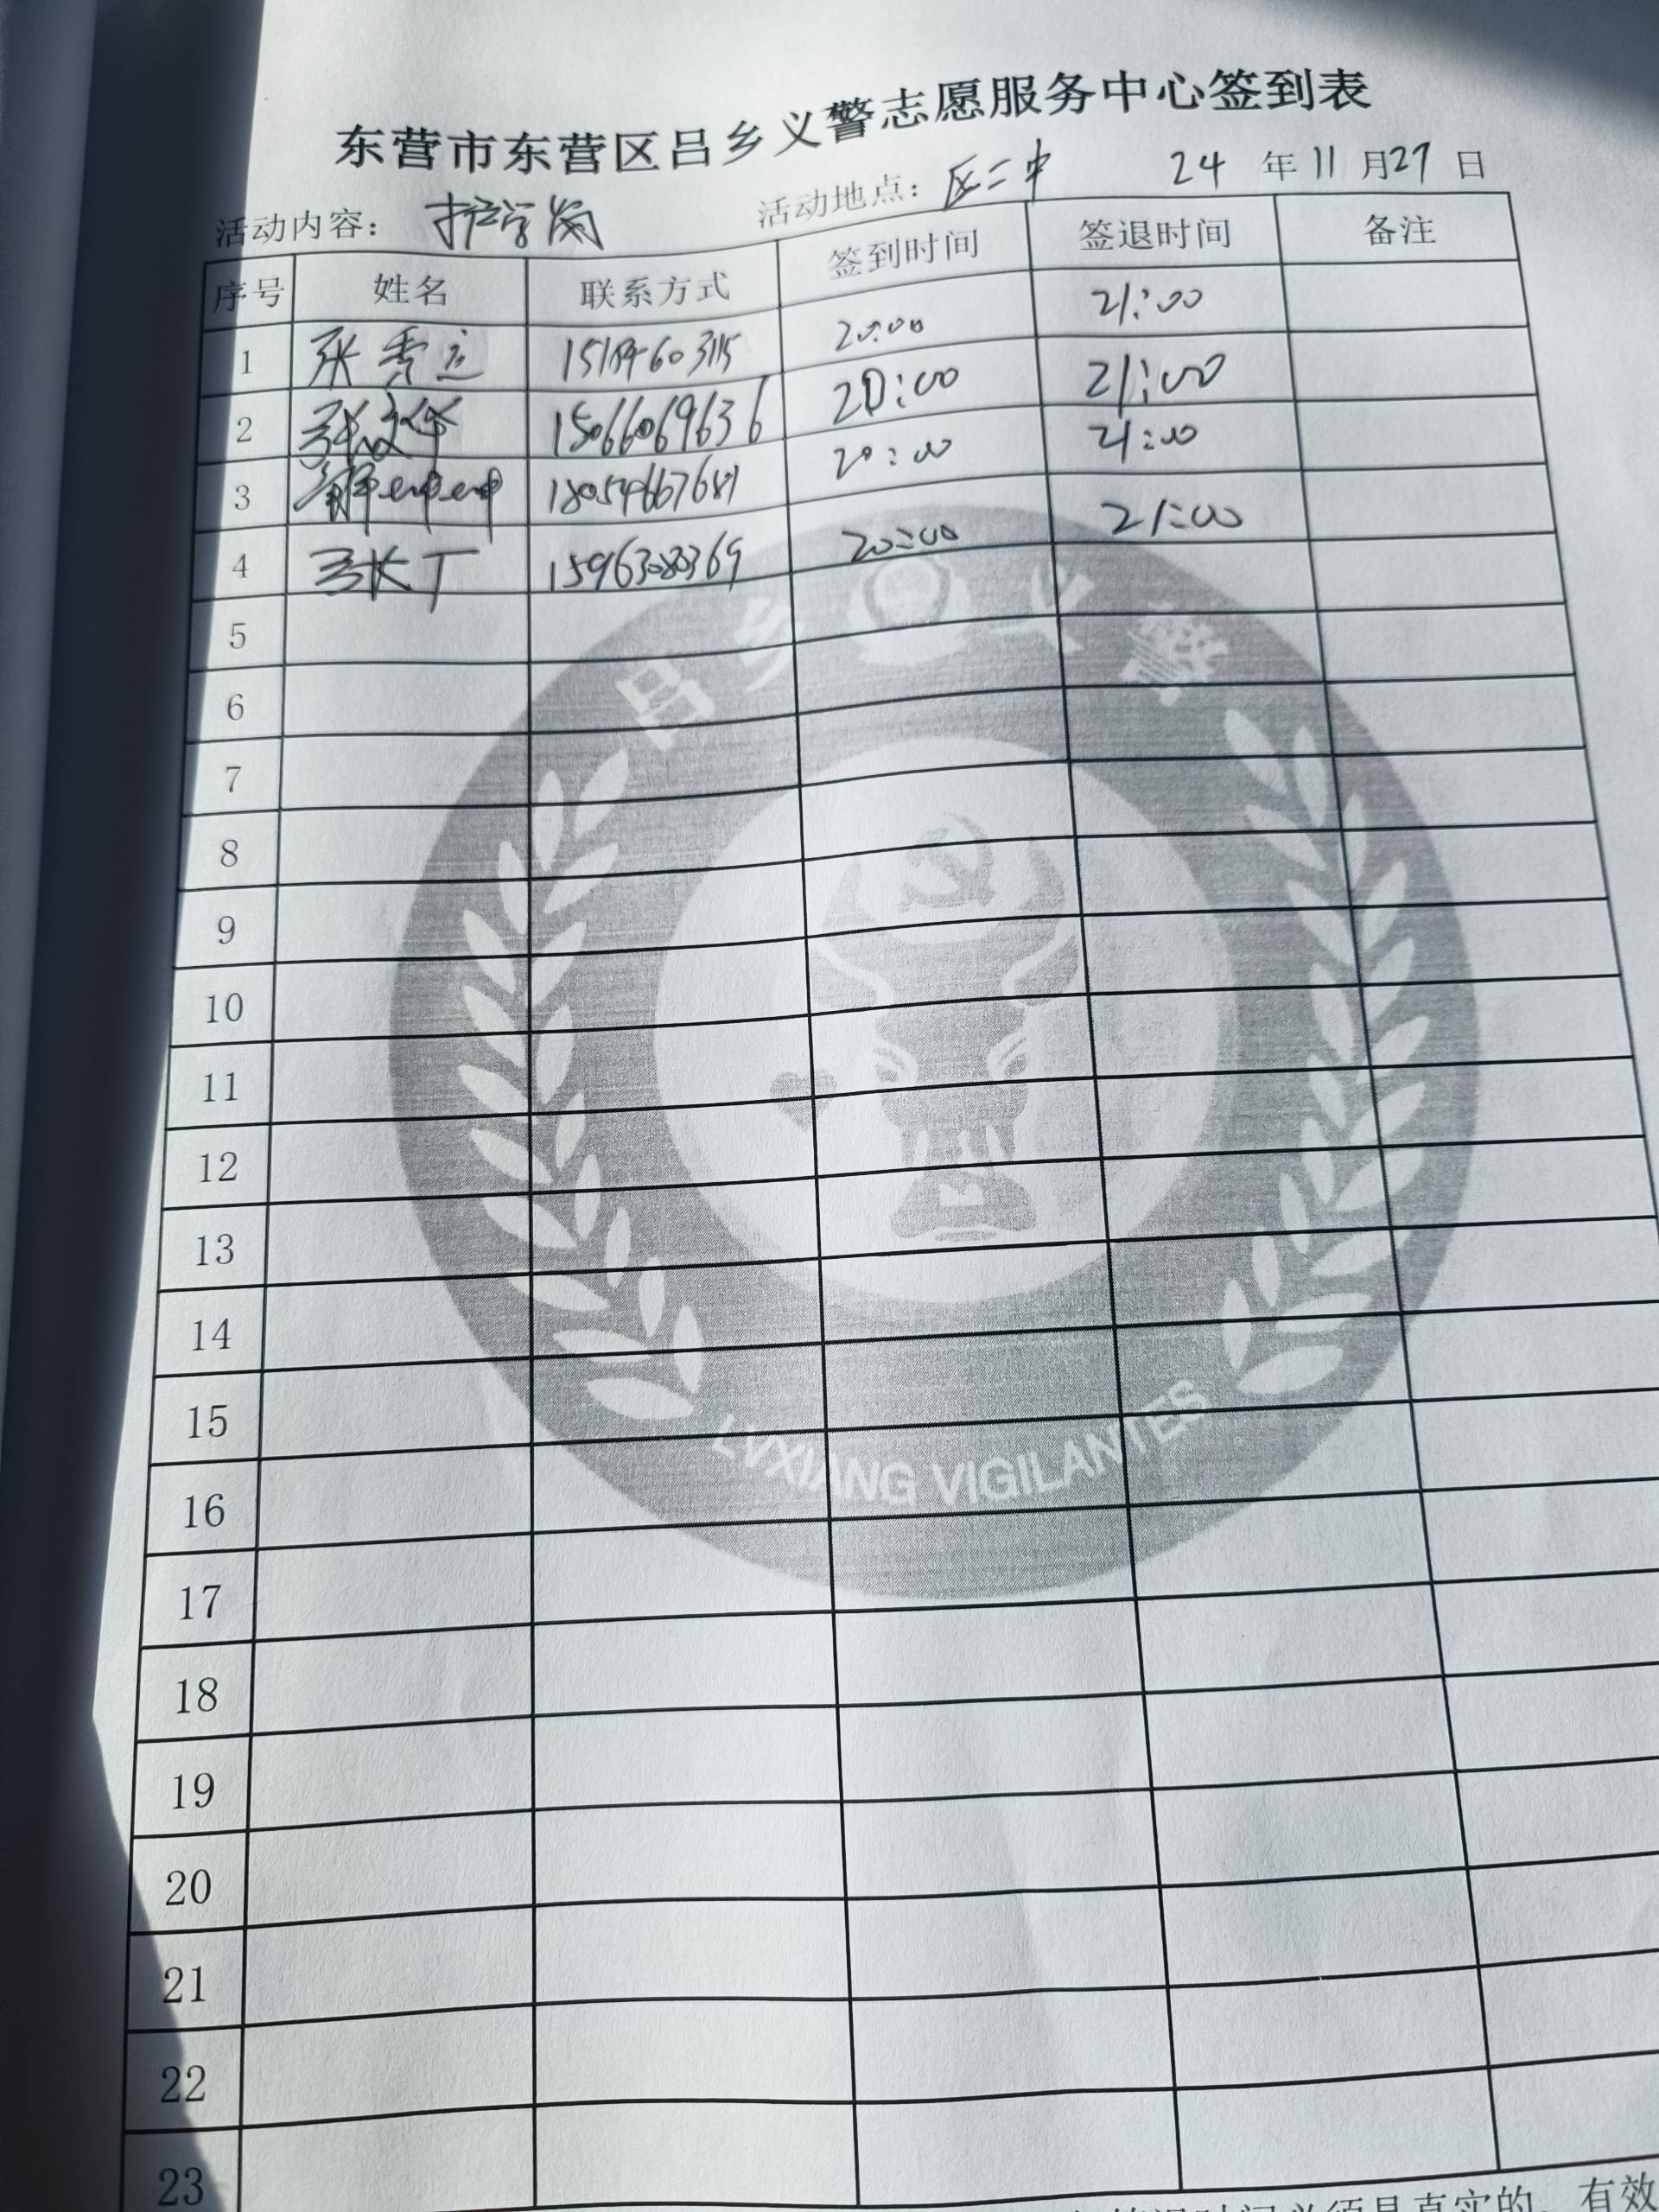 东营市东营区吕乡义警志愿服务中心签到表
活动内容： 护学岗 活动地点： 区二中 24 年 11 月 27 日
序号 姓名 联系方式 签到时间 签退时间 备注
1 张秀 20:00 21:00
2 张文华 15066069636 20:00 21:00
3 解 18054667681 20:00 21:00
4 张丁 15963080369 20:00 21:00
5
6
7
8
9
10
11
12
13
14
15
16
17
18
19
20
21
22
23
吕乡义警
LVXIANG VIGILANTES
签退时间必须是真实的 有效